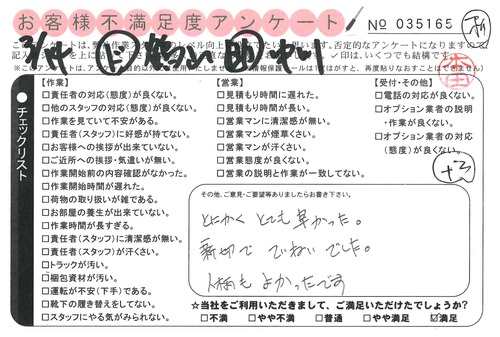 お客様不満足度アンケート
No 035165
このアンケートは、弊社作業スタッフのレベル向上
否定的なアンケートになりますので
✓印は、いくつでも結構です。
※このアンケートは、
再度貼りなおすことはできません)
チェックリスト
【作業】
□責任者の対応(態度)が良くない。
□他のスタッフの対応(態度)が良くない。
□作業を見ていて不安がある。
□責任者(スタッフ)に好感が持てない。
□お客様への挨拶が出来ていない。
□ご近所への挨拶・気遣いが無い。
□作業開始前の内容確認がなかった。
□作業開始時間が遅れた。
□荷物の取り扱いが雑である。
□お部屋の養生が出来ていない。
□作業時間が長すぎる。
□責任者(スタッフ)に清潔感が無い。
□責任者(スタッフ)が汗くさい。
□トラックが汚い。
□梱包資材が汚い。
□運転が不安(下手)である。
□靴下の履き替えをしてない。
□スタッフにやる気がみられない。
【営業】
□見積もり時間に遅れた。
□見積もり時間が長い。
□営業マンに清潔感が無い。
□営業マンが煙草くさい。
□営業マンが汗くさい。
□営業態度が良くない。
□営業の説明と作業が一致してない。
【受付・その他】
□電話の対応が良くない。
□オプション業者の説明
・作業が良くない。
□オプション業者の対応
(態度)が良くない。
その他、ご意見・ご要望等ありましたらお書き下さい。
とにかく とても 早かった。
親切で ていねいでした。
人柄も よかったです
☆当社をご利用いただきまして、ご満足いただけたでしょうか?
□不満 □やや不満 □普通 □やや満足 ☑満足